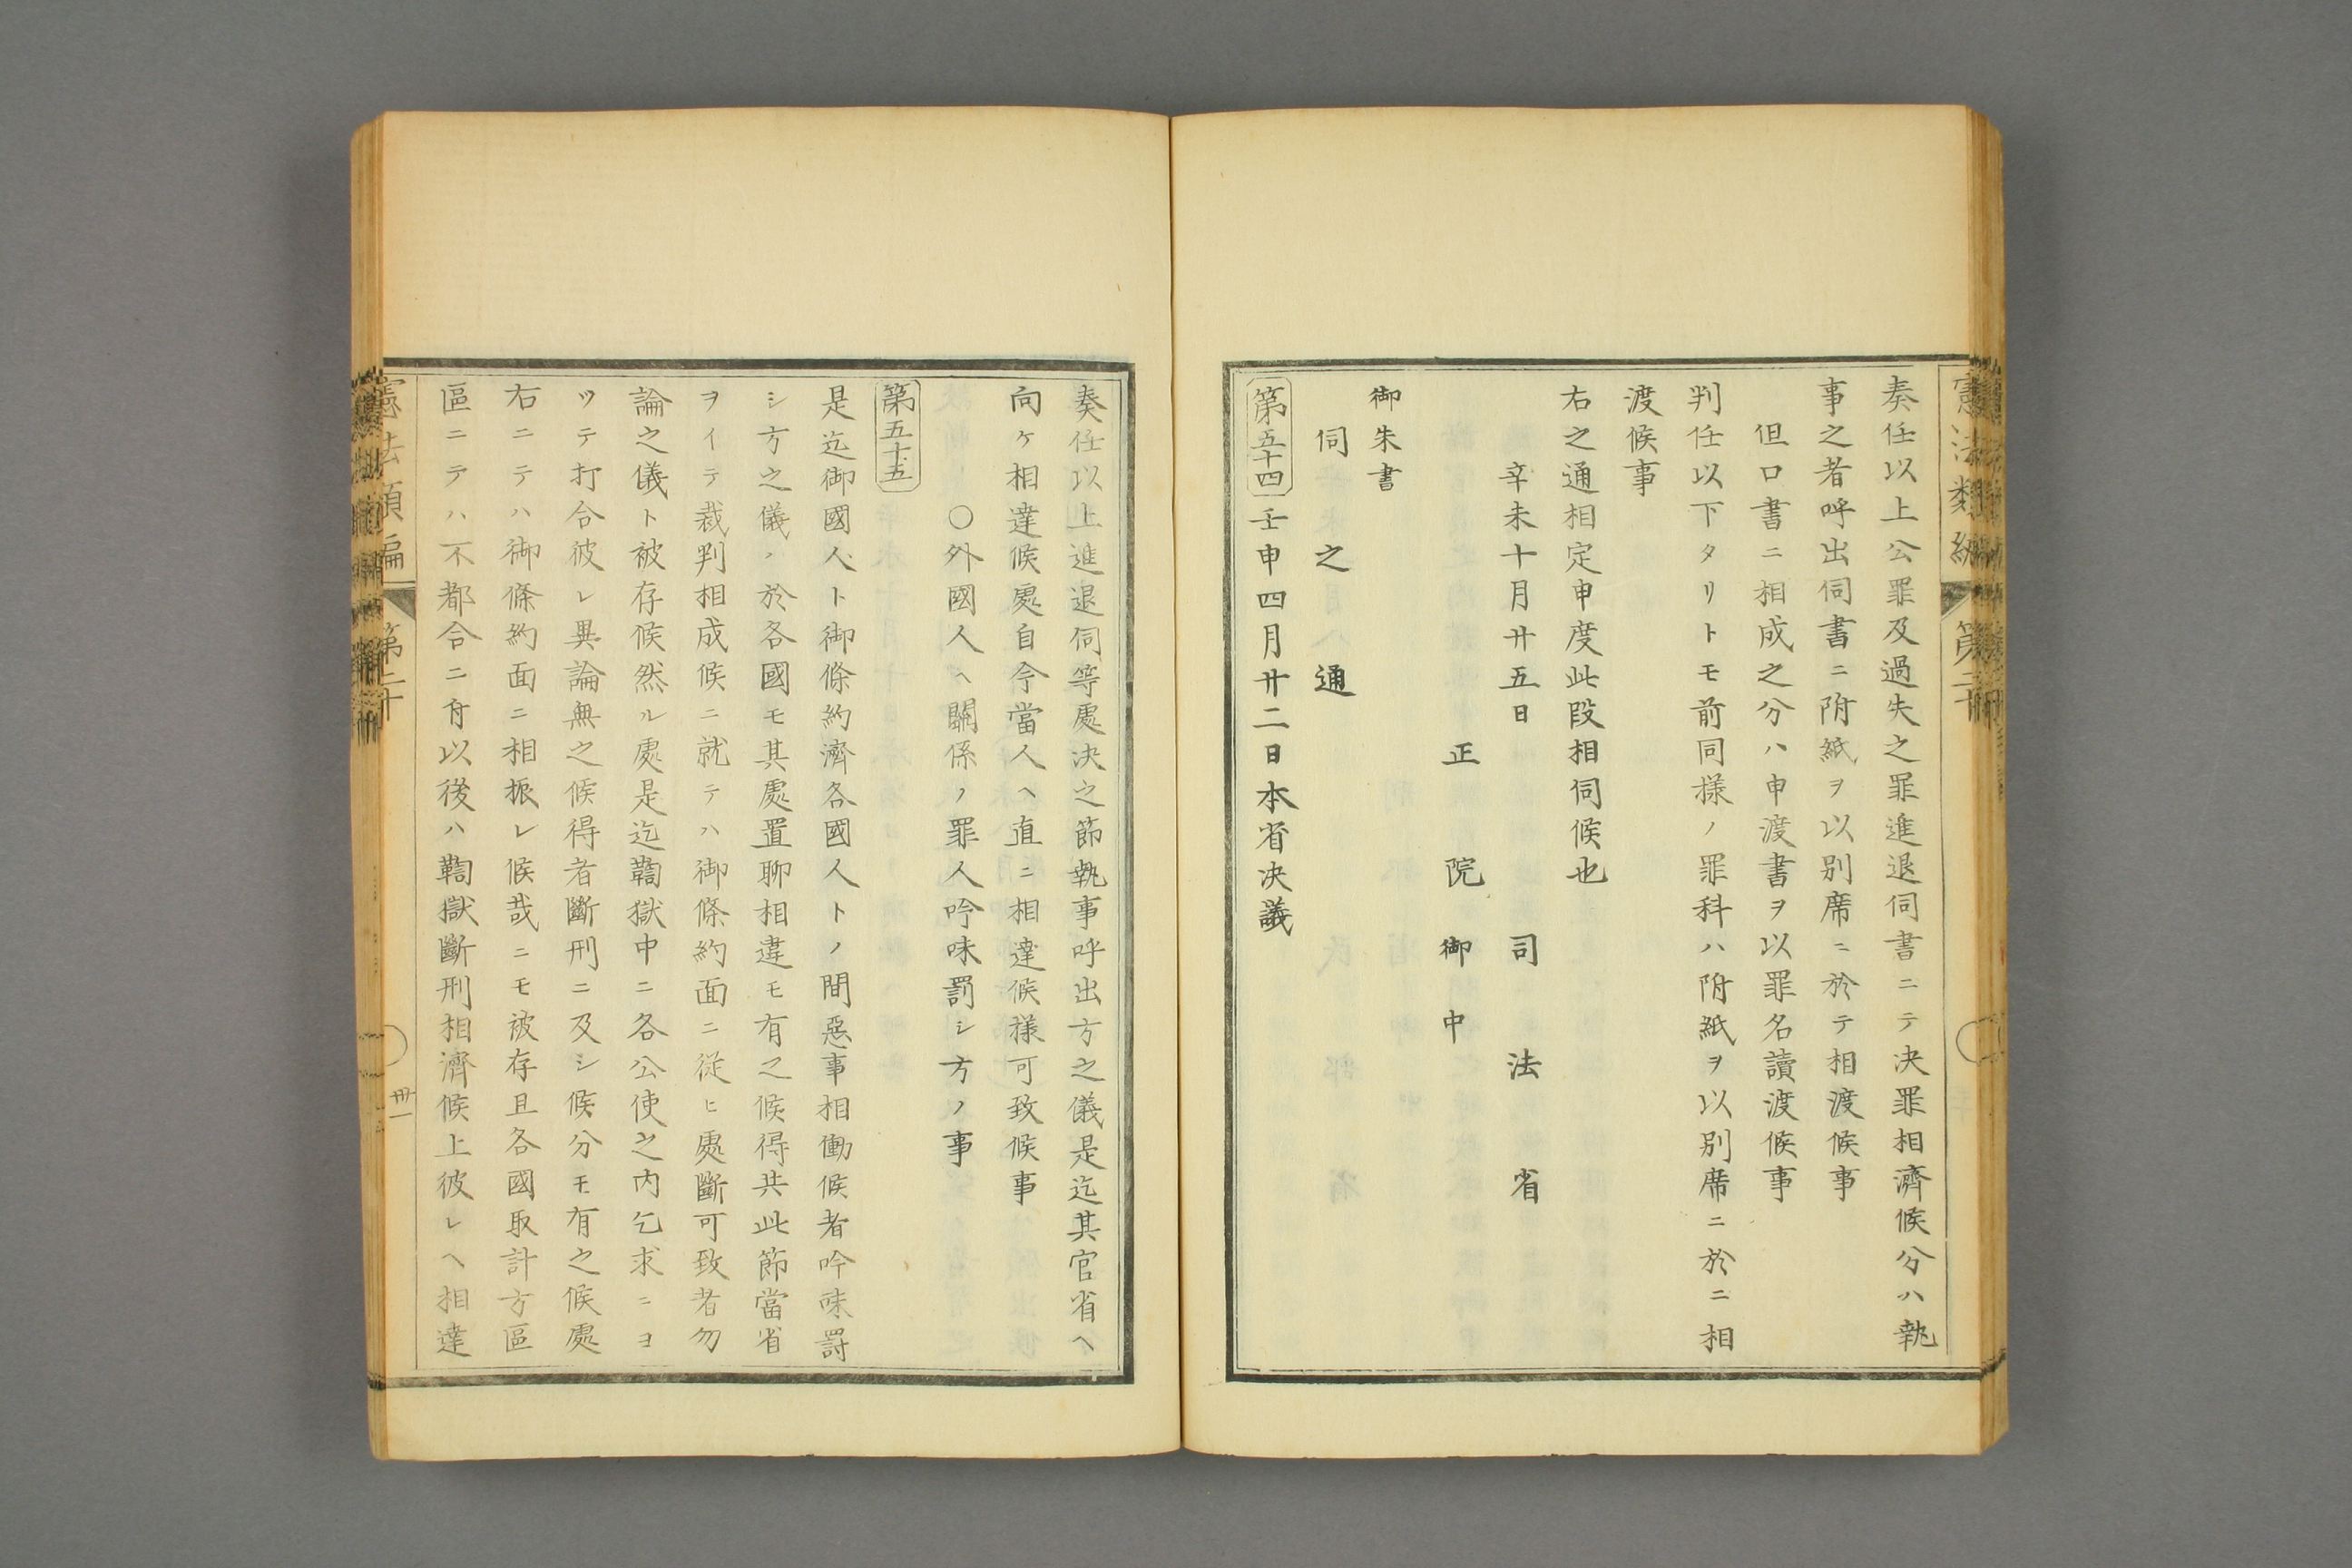 憲法類編　第二十
奏任以上公罪及過失之罪進退伺書ニテ决罪相濟候分ハ執
事之者呼出伺書ニ附紙ヲ以別席ニ於テ相渡候事
但口書ニ相成之分ハ申渡書ヲ以罪名讀渡候事
判任以下タリトモ前同樣ノ罪科ハ附紙ヲ以別席ニ於ニ相
渡候事
右之通相定申度此段相伺候也
辛未十月廿五日　司法省
正院御中
御朱書
伺之通
第五十四　壬申四月廿二日本省决議
奏任以上進退伺等處决之節執事呼出方之儀是迄其官省ヘ
向ケ相達候處自今當人ヘ直ニ相達候樣可致候事
〇外國人ヘ關係ノ罪人吟味罰シ方ノ事
第五十五
是迄御國人ト御條約濟各國人トノ間惡事相働候者吟味罸
シ方之儀ハ於各國モ其處置聊相違モ有之候得共此節當省
ヲイテ裁判相成候ニ就テハ御條約面ニ從ヒ處斷可致者勿
論之儀ト被存候然ル處是迄鞫獄中ニ各公使之内乞求ニヨ
ツテ打合彼レ異論無之候得者斷刑ニ及シ候分モ有之候處
右ニテハ御條約面ニ相振レ候哉ニモ被存且各國取計方區
區ニテハ不都合ニ付以後ハ鞫獄斷刑相濟候上彼レヘ相達
憲法類編　第二十　卅一